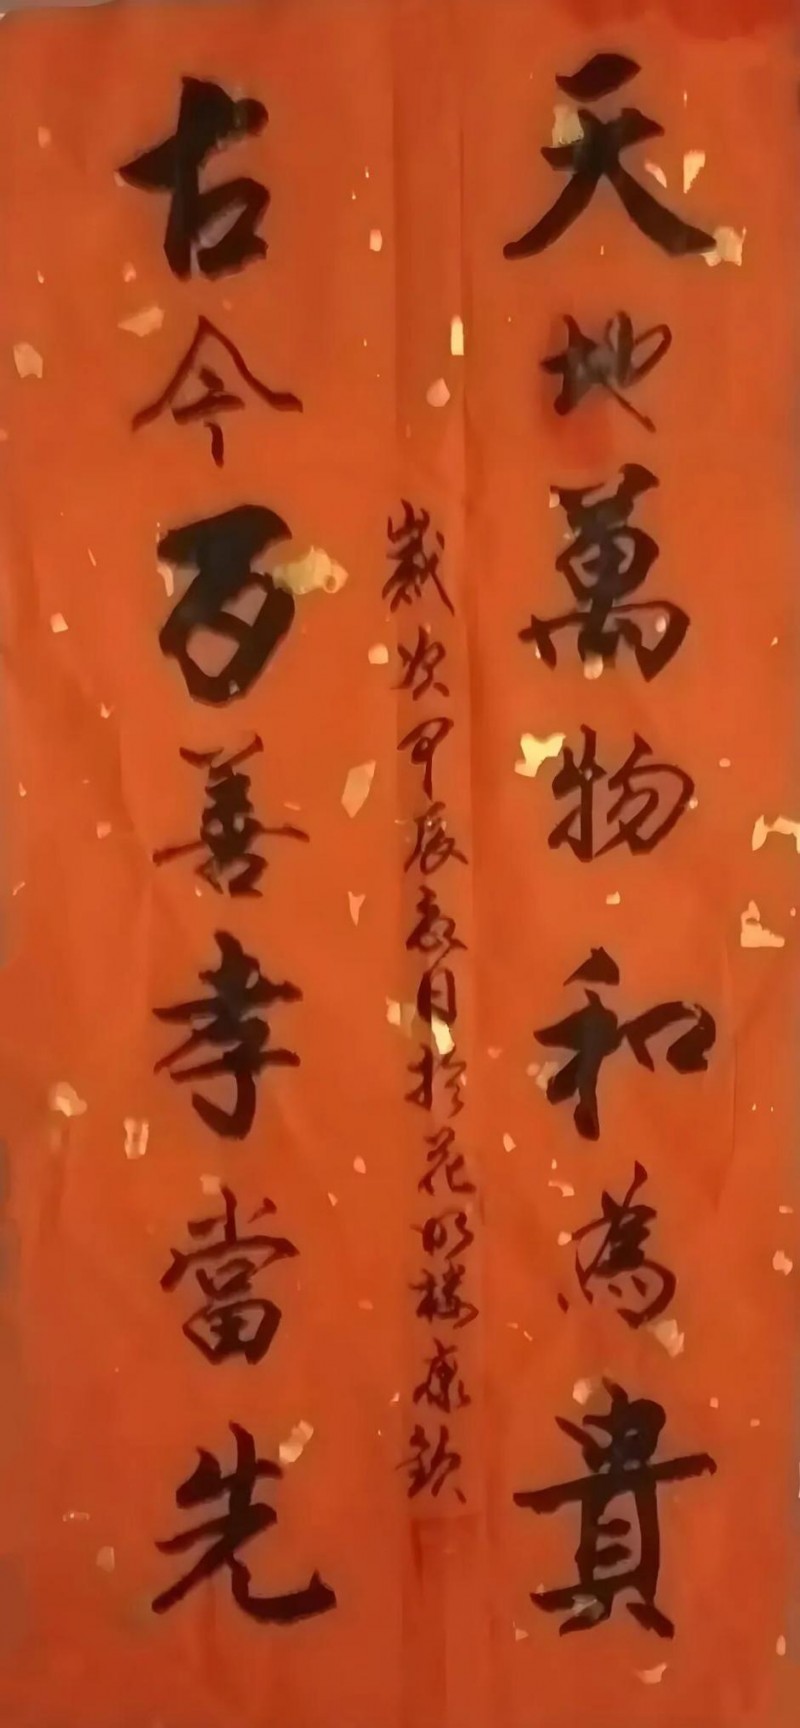 天地萬物和為貴
古今百善孝當先
歲次甲辰春月於花明楼康钦